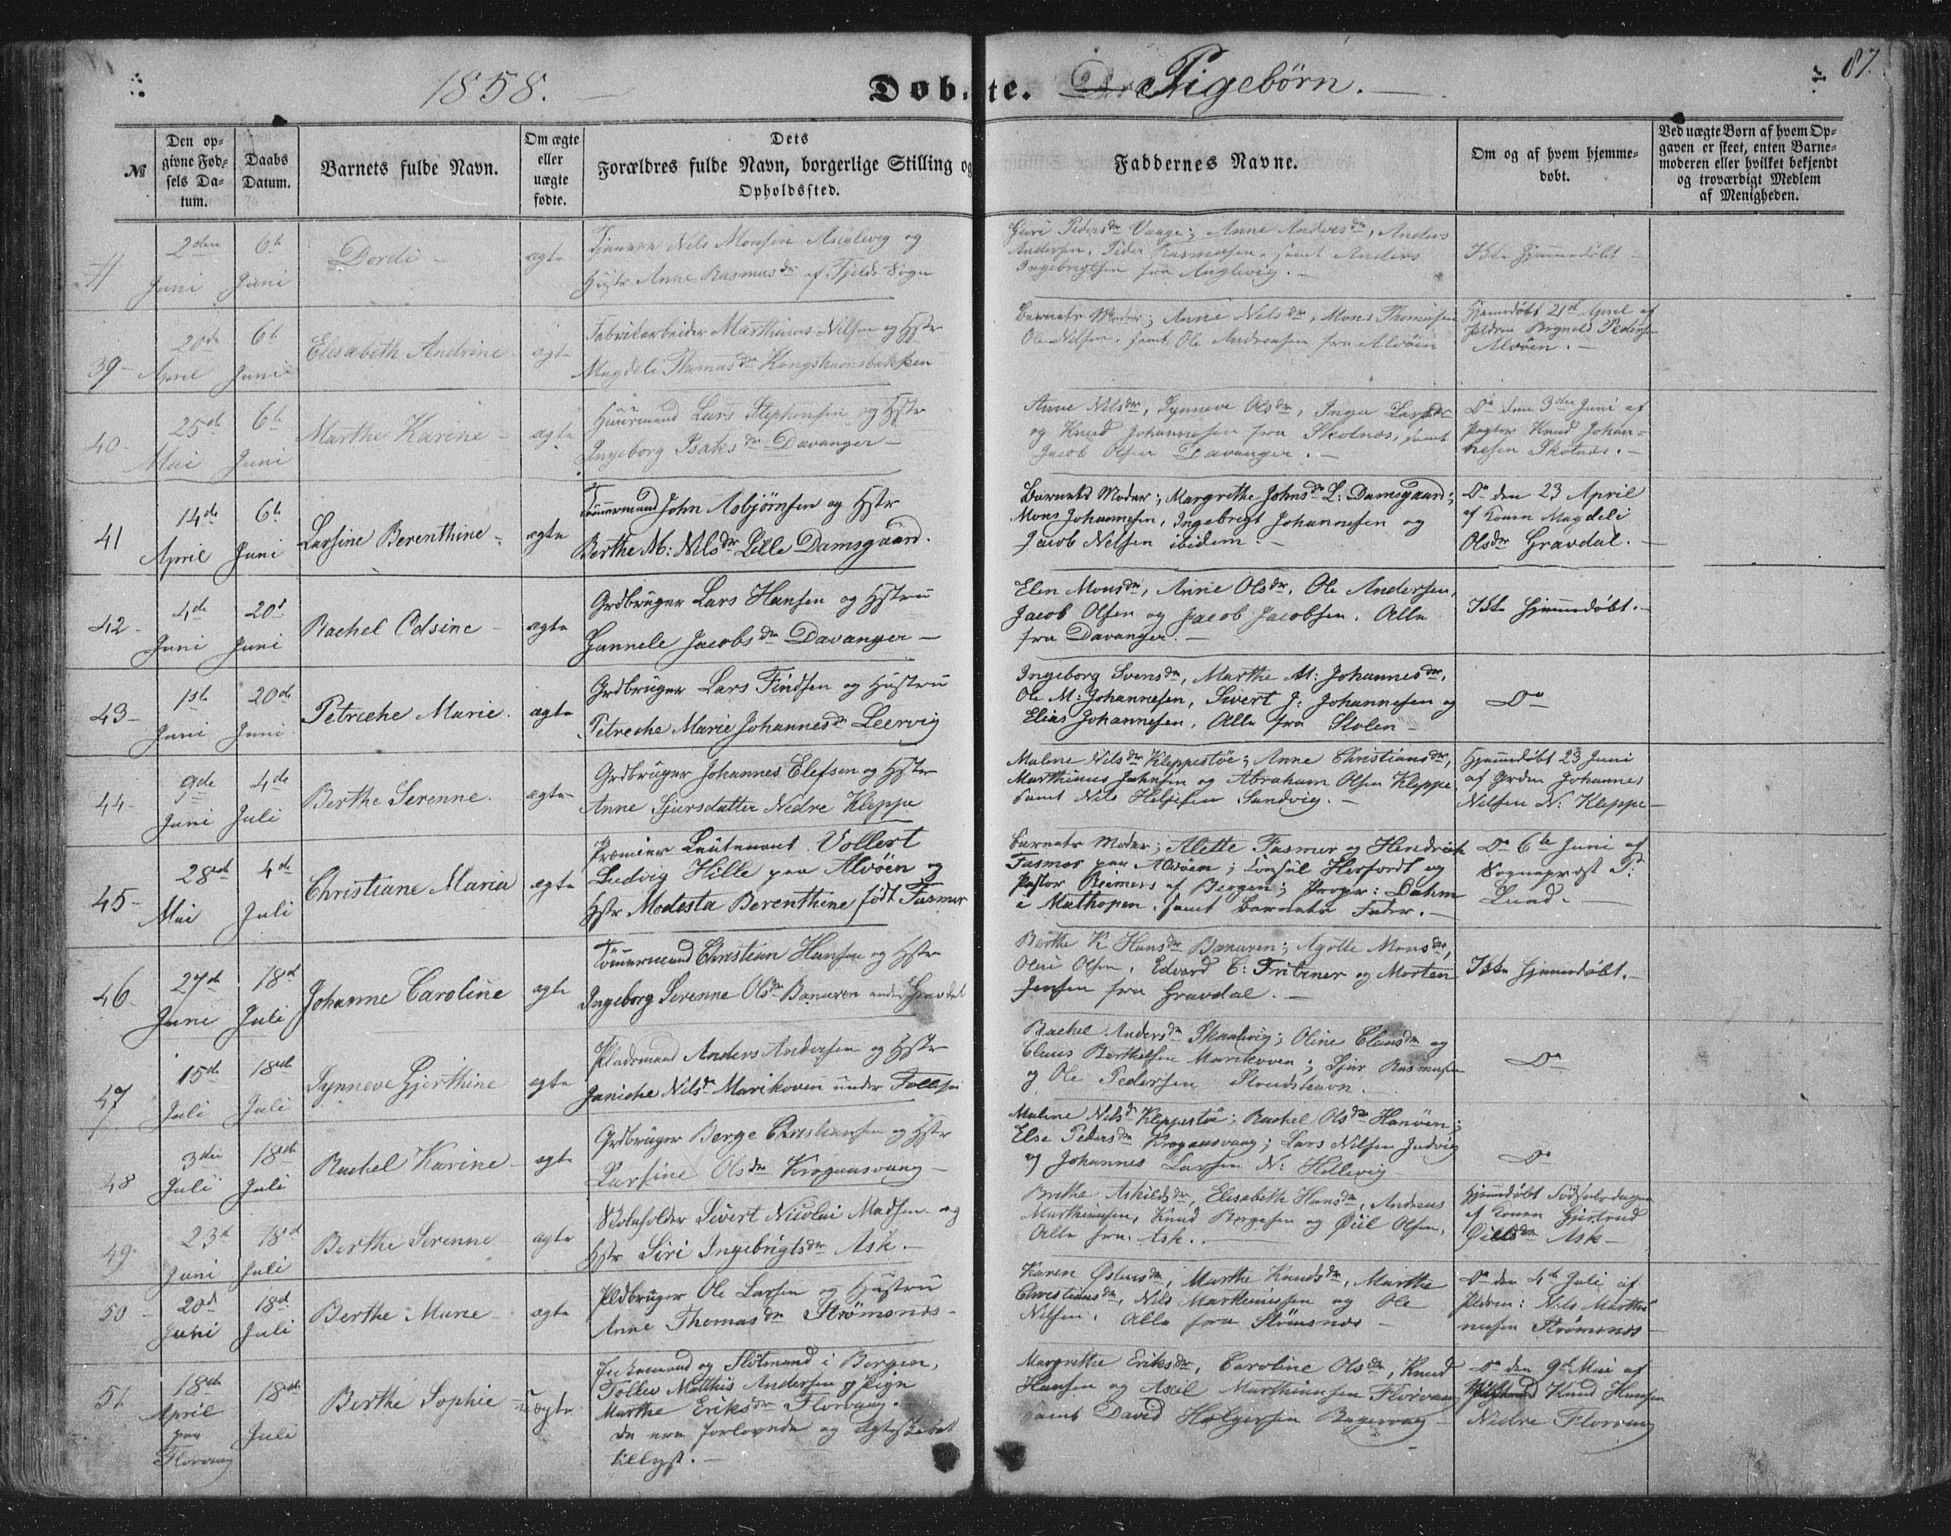 1858. —
Døb- te. Pigebørn. —
87.
№
Den opgivne Fødsels Datum.
Daabs Datum.
Barnets fulde Navn.
Om ægte eller uægte fødte.
Dets Forældres fulde Navn, borgerlige Stilling og Opholdssted.
Faddernes Navne.
Om og af hvem hjemmedøbt.
Ved uægte Børn af hvem Opgaven er skeet, enten Barnemoderen eller hvilket bekjendt og troværdigt Medlem af Menigheden.
2den Juni
6te Juni
Dordi —
ægte
Nils Monsen og
Hustr Anne Rasmusdr af Fjelds Sogn
Guri Pedersdr Vaage; Anne Andersdr, Anders
Andersen, Peder Rasmussen, samt Anders
Ingebrigtsen fra
Ikke Hjemmedøbt —
39 —
20de April
6te Juni
Elisabeth Andrine
ægte
Fabrikarbeider Marthinus Nilsen og Hstr
Magdeli Thomasdr Kongshavnsbakken
Barnets Moder; Anne Nilsdr, Mons Thomassen
Ole Nilsen, samt Ole Andreasen fra Alvøen
Hjemmedøbt 21st April af
Pedersen
Alvøen. —
40
25de Mai
6te Juni
Marthe Karine —
ægte
Huusmand Lars Stephensen og Hstr
Ingeborg Isaksdr Davanger —
Anne Nilsdr, Synneve Olsdr, Inger Larsdr
og Knud Johannesen fra Skolnæs, samt
Jacob Olsen Davanger. —
Do den 3die Juni af
Knud Johan-
nesen Skolnæs. —
41
14de April
6te Juni
Larsine Berenthine —
ægte
Tømmermand John Asbjørnsen og Hstr
Berthe M: Nilsdr Lille Damsgaard.
Barnets Moder; Margrethe Johnsdr L: Damsgaard;
Mons Johannesen, Ingebrigt Johannesen og
Jacob Nelsen ibidem. —
Do den 23 April
af Konen Magdeli
Olsdr Gravdal. —
42 —
4de Juni
20de Juni
Rachel Olsine —
ægte
Grdbruger Lars Hansen og Hstru
Gunnele Jacobsdr Davanger —
Elen Monsdr, Anne Olsdr, Ole Andersen,
Jacob Olsen og Jacob Jacobsen. Alle
fra Davanger. —
Ikke Hjemmedøbt. —
43 —
1ste Juni
20de Juni
Petreche Marie.
ægte
Grdbruger Lars Findsen og Hustru
Petreche Marie Johannesdr Leervig
Ingeborg Svensdr, Marthe M: Johannesdr,
Ole M: Johannesen, Sivert J: Johannesen og
Elias Johannesen, Alle fra Stolen —
Do
44 —
9de Juni
4de Juli
Berthe Serenne.
ægte
Grdbruger Johannes Elefsen og Hstr
Anne Sjursdatter Nedre Kleppe
Maline Nilsdr Kleppestøe; Anne Christiansdr,
Marthinus Johnsen og Abraham Olsen Kleppe
samt Nils Sandvig. —
Hjemmedøbt 23 Juni
af Grdm Johannes
Nilsen N: Kleppe —
45 —
28de Mai
4de Juli
Christiane Maria
ægte
Premier Lieutenant Vollert
Ludvig Hille paa Alvøen og
Hstr Modesta Berenthine født Fasmer
Barnets Moder; Alette Fasmer og Hendrich
Fasmer paa Alvøen; Consul Herfordt og
Pastor Reimers af Bergen; Propr: Dahm
i Mathopen, samt Barnets Fader. —
Do 6te Juni af
Sogneprest P:
Lund. —
46 —
27de Juni
18de Juli
Johanne Caroline
ægte
Tømmermand Christian Hansen og Hstr
Ingeborg Serenne Olsdr Banuren under Gravdal
Berthe K Hansdr Banuren; Agotte Monsdr,
Oluf Olsen, Edvard C: Fritzner og Morten
Jensen fra Gravdal. —
Ikke Hjemmedøbt. —
47
15de Juli
18de Juli
Synneve Gjerthine
ægte
Pladsmand Anders Andersen og Hstr
Janiche Nilsdr Marikoven under
Rachel Andersdr Skaalevig; Oline Clausdr og
Claus Berthelsen Marikoven; Sjur Rasmussen
og Ole Pedersen
Do
48
3die Juli
18de Juli
Rachel Karine —
ægte
Grdbruger Berge Christiansen og Hstr
Larsine Olsdr Krogaasvaag —
Maline Nilsdr Kleppestøe; Rachel Olsdr Hanøen;
Else Pedersdr Krogaasvaag; Lars Nilsen Judvig
og Johannes Larsen N: Hellevig —
Do
49
23de Juni
18de Juli
Berthe Serenne —
ægte
Skoleholder Sivert Nicolai Madsen og
Hstr Siri Ingebrigtsdr Ask. —
Brithe Askildsdr, Elisabeth Hansdr, Andreas
Marthinusen, Knud Børgesen og Øiel Olsen,
Alle fra Ask. —
Hjemmedøbt Fødselsdagen
af Konen Gjertrud
Øielsdr Ask —
50 —
20de Juni
18de Juli
Berthe Marie —
ægte
Pldbruger Ole Larsen og Hustru
Anne Thomasdr Strømsnæs —
Karen Øslensdr, Marthe Knudsdr, Marthe
Christiansdr, Nils Marthinussen og Ole
Nilsen. Alle fra Strømsnæs —
Do den 4de Juli af
Pldbm: Nils Marthi-
nussen Strømsnæs —
51
18de April paa Florvaag
18de Juli
Berthe Sophie —
uægte
og i Bergen,
Tollev Matthis Andersen og Pige
Marthe Eriksdr Florvaag.
De ere forlovede og Ægteskabet
tillyst. —
Margrethe Eriksdr, Caroline Olsdr, Knud
Hansen og Axel Marthinussen Florvaag
samt David Holgersen —
Do den 9de Mai af
Knud Hansen
Nedre Florvaag